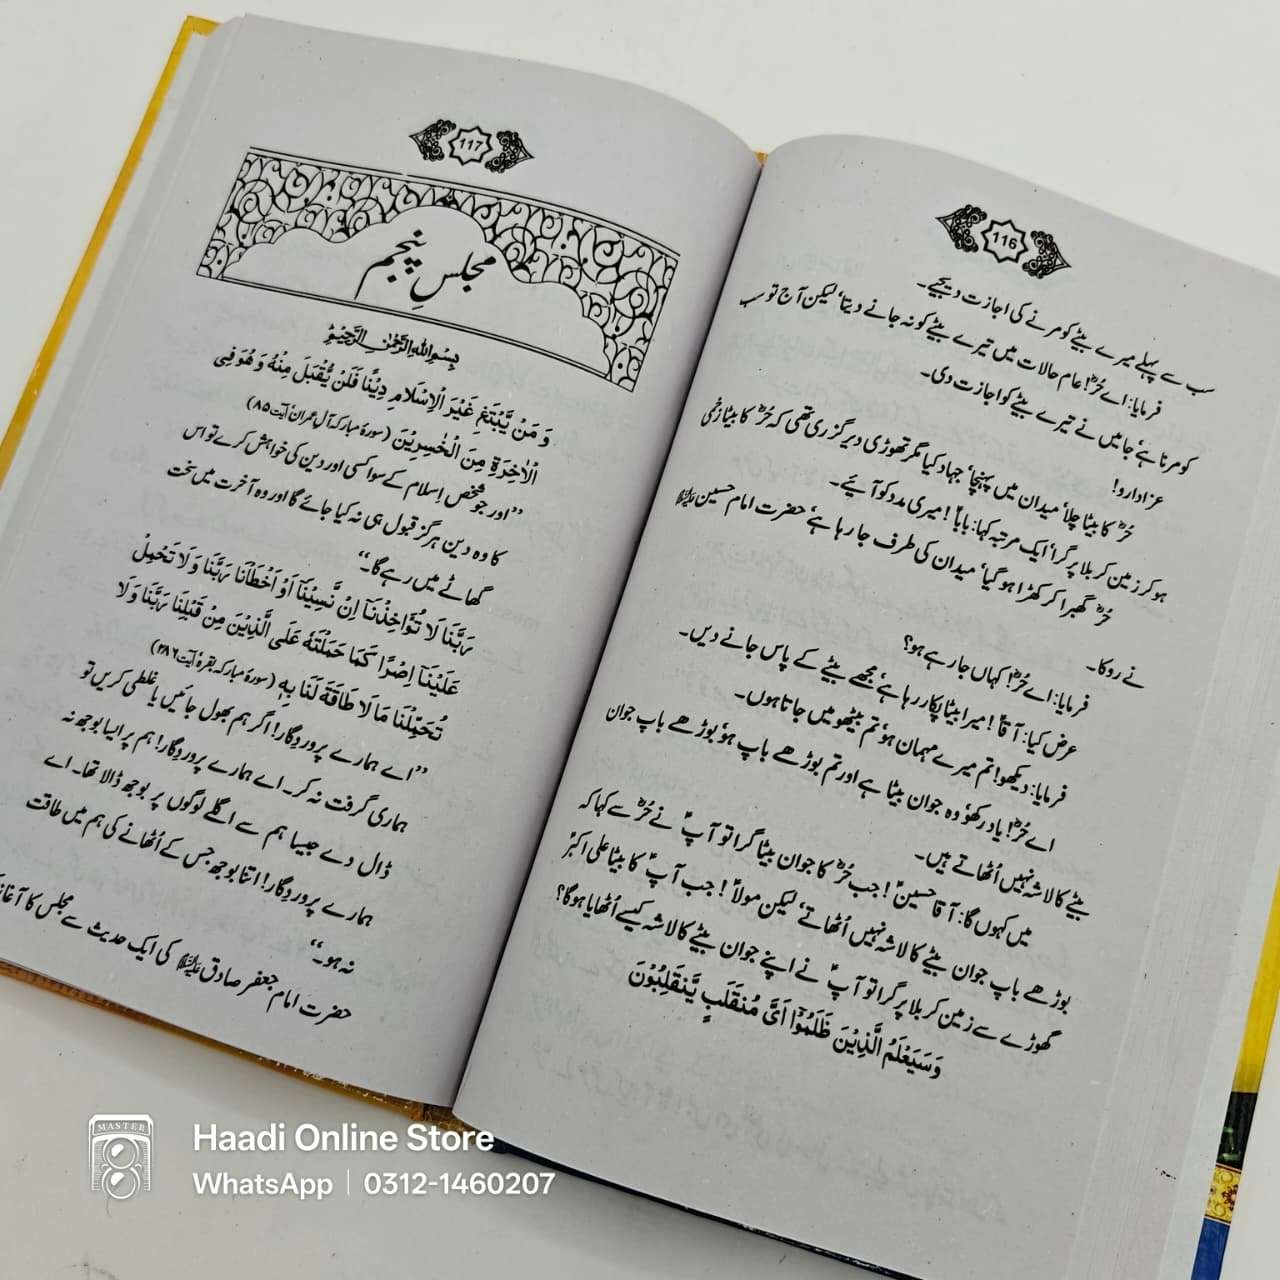 116
سب سے پہلے میرے بیٹے کو مرنے کی اجازت دیجیے۔
فرمایا: اے حُرؓ! عام حالات میں تیرے بیٹے کو نہ جانے دیتا، لیکن آج تو سب
کو مرنا ہے، جا میں نے تیرے بیٹے کو اجازت دی۔
عزادارو!
حُرؓ کا بیٹا چلا، میدان میں پہنچا، جہاد کیا مگر تھوڑی دیر گزری تھی کہ حُرؓ کا بیٹا زخمی
ہو کر زمین کربلا پر گرا، ایک مرتبہ کہا: بابا! میری مدد کو آئیے۔
حُرؓ گھبرا کر کھڑا ہو گیا، میدان کی طرف جا رہا ہے، حضرت امام حسین علیہ السلام
نے روکا۔
فرمایا: اے حُرؓ! کہاں جا رہے ہو؟
عرض کیا: آقاؑ! میرا بیٹا پکار رہا ہے، مجھے بیٹے کے پاس جانے دیں۔
فرمایا: دیکھو! تم میرے مہمان ہو، تم بیٹھو میں جاتا ہوں۔
اے حُرؓ! یاد رکھو، وہ جوان بیٹا ہے اور تم بوڑھے باپ ہو، بوڑھے باپ جوان
بیٹے کا لاشہ نہیں اُٹھاتے ہیں۔
میں کہوں گا: آقا حسینؑ! جب حُرؓ کا جوان بیٹا گرا تو آپؑ نے حُرؓ سے کہا کہ
بوڑھے باپ جوان بیٹے کا لاشہ نہیں اُٹھاتے، لیکن مولاؑ! جب آپؑ کا بیٹا علی اکبرؑ
گھوڑے سے زمین کربلا پر گرا تو آپؑ نے اپنے جوان بیٹے کا لاشہ کیسے اُٹھایا ہوگا؟
وَسَيَعْلَمُ الَّذِيْنَ ظَلَمُوْٓا اَىَّ مُنْقَلَبٍ يَّنْقَلِبُوْنَ
117
مجلسِ پنجم
بِسْمِ اللّٰهِ الرَّحْمٰنِ الرَّحِيْمِ
وَ مَنْ يَّبْتَغِ غَيْرَ الْاِسْلَامِ دِيْنًا فَلَنْ يُّقْبَلَ مِنْهُ وَ هُوَ فِي
الْاٰخِرَةِ مِنَ الْخٰسِرِيْنَ (سورہ مبارکہ آل عمران، آیت ۸۵)
”اور جو شخص اسلام کے سوا کسی اور دین کی خواہش کرے تو اس
کا وہ دین ہرگز قبول ہی نہ کیا جائے گا اور وہ آخرت میں سخت
گھاٹے میں رہے گا۔“
رَبَّنَا لَا تُؤَاخِذْنَا اِنْ نَّسِيْنَا اَوْ اَخْطَاْنَا رَبَّنَا وَ لَا تَحْمِلْ
عَلَيْنَا اِصْرًا كَمَا حَمَلْتَهٗ عَلَى الَّذِيْنَ مِنْ قَبْلِنَا رَبَّنَا وَ لَا
تُحَمِّلْنَا مَا لَا طَاقَةَ لَنَا بِهٖ (سورہ مبارکہ بقرہ، آیت ۲۸۶)
”اے ہمارے پروردگار! اگر ہم بھول جائیں یا غلطی کریں تو
ہماری گرفت نہ کر۔ اے ہمارے پروردگار! ہم پر ایسا بوجھ نہ
ڈال دے جیسا ہم سے اگلے لوگوں پر بوجھ ڈالا تھا۔ اے
ہمارے پروردگار! اتنا بوجھ جس کے اُٹھانے کی ہم میں طاقت
نہ ہو۔“
حضرت امام جعفر صادق علیہ السلام کی ایک حدیث سے مجلس کا آغاز
MASTER
Haadi Online Store
WhatsApp | 0312-1460207